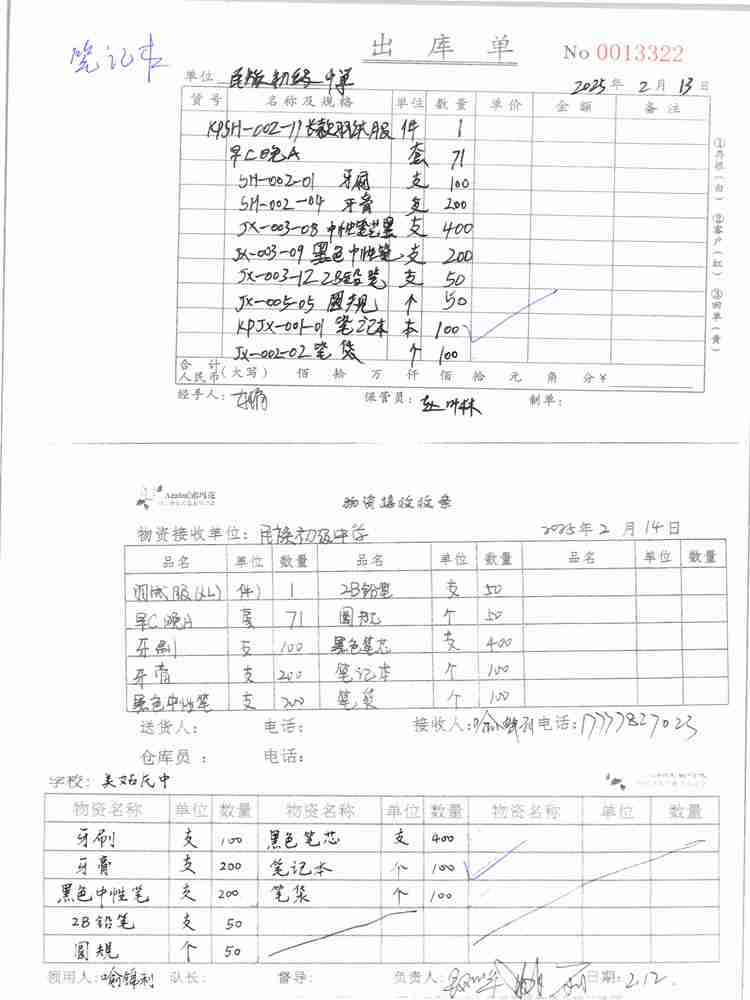 笔记本
出库单
No 0013322
单位 民族初级中学 2025年2月13日
货号 名称及规格 单位 数量 单价 金额 备注
KPSH-002-17 长款羽绒服 件 1
早C晚A 套 71
SH-002-01 牙刷 支 100
SH-002-04 牙膏 支 200
JX-003-08 中性笔芯黑 支 400
JX-003-09 黑色中性笔 支 200
JX-003-12 2B铅笔 支 50
JX-005-05 圆规 个 50
KPJX-001-01 笔记本 本 100
JX-002-02 笔袋 个 100
合计人民币(大写) 佰 拾 万 仟 佰 拾 元 角 分 ¥
经手人: 保管员: 制单:
①存根(白) ②客户(红) ③回单(黄)
物资接收收条
物资接收单位: 民族初级中学 2025年2月14日
品名 单位 数量 品名 单位 数量 品名 单位 数量
(XL) 件 1 2B铅笔 支 50
早C晚A 套 71 圆规 个 50
牙刷 支 100 黑色笔芯 支 400
牙膏 支 200 笔记本 个 100
黑色中性笔 支 200 笔袋 个 100
送货人: 电话: 接收人:喻锦利 电话:17777827023
仓库员: 电话:
学校: 美姑民中
物资名称 单位 数量 物资名称 单位 数量 物资名称 单位 数量
牙刷 支 100 黑色笔芯 支 400
牙膏 支 200 笔记本 个 100
黑色中性笔 支 200 笔袋 个 100
2B铅笔 支 50
圆规 个 50
领用人:喻锦利 队长: 督导: 负责人: 日期:2.12.